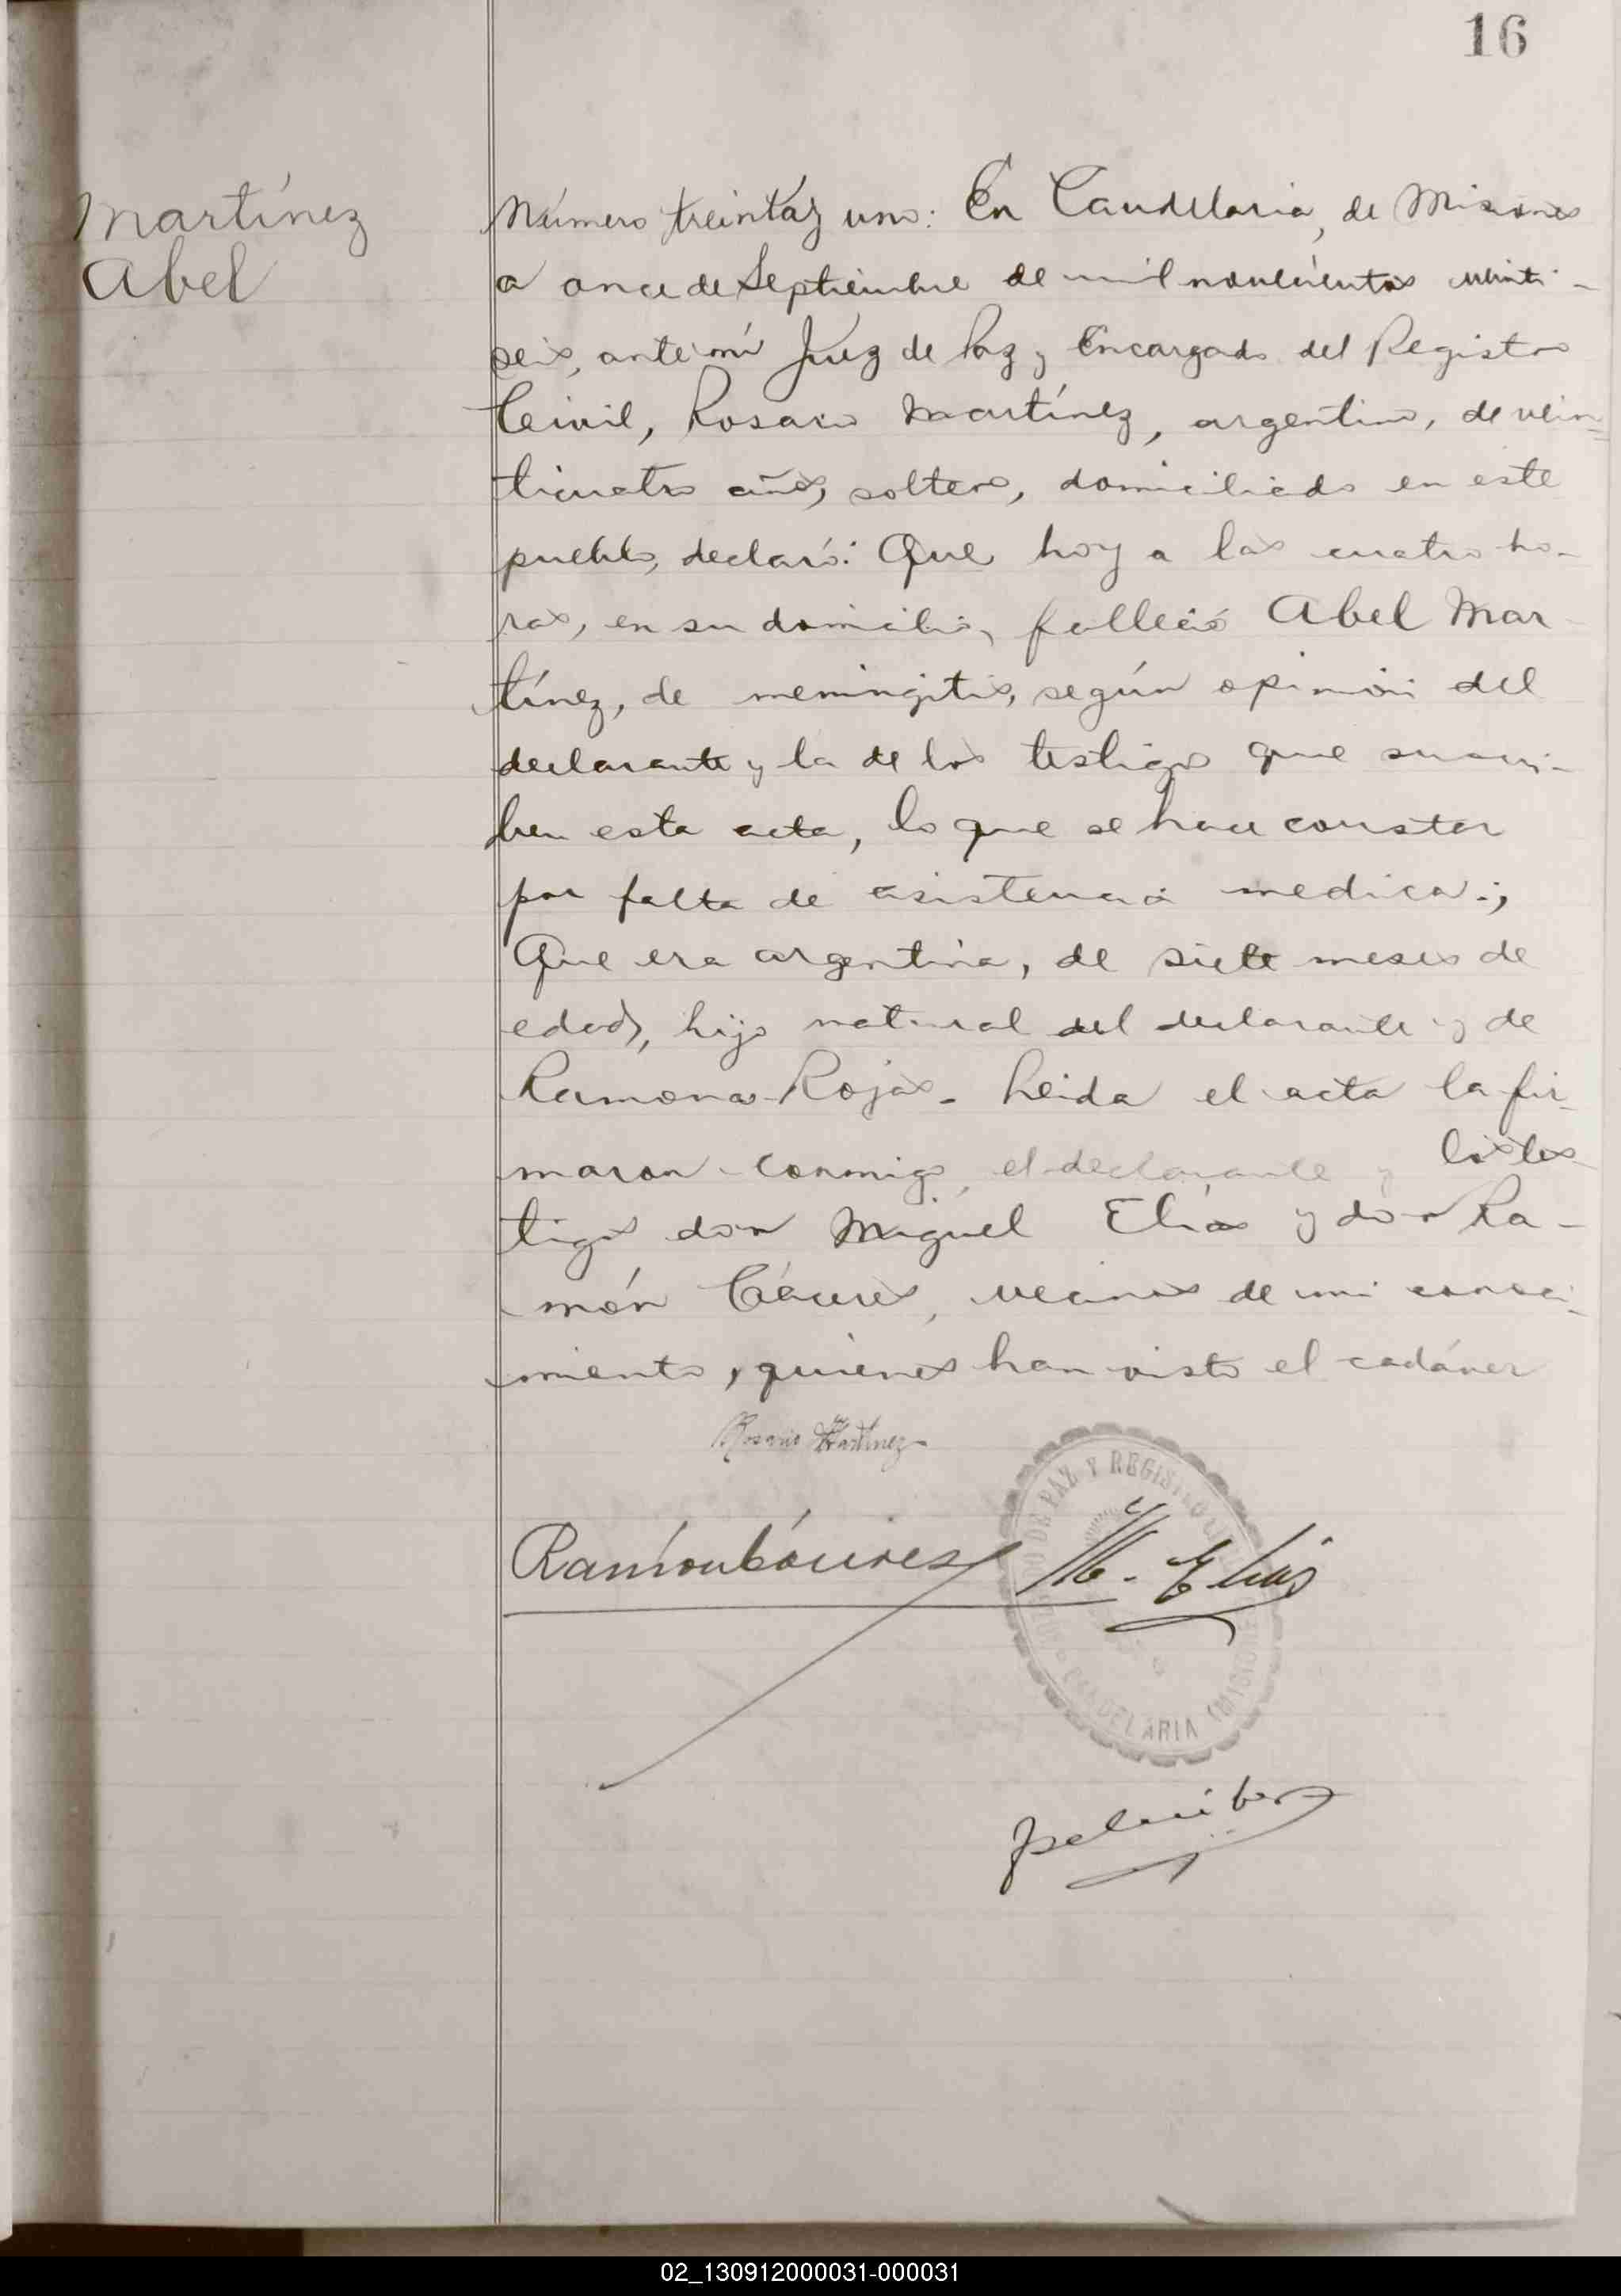 16
Martínez
Abel
Número treinta y uno: En Candelaria, de Misiones
a once de Septiembre de mil novecientos veinti-
seis, ante mí Juez de Paz y Encargado del Registro
Civil, Rosario Martínez, argentino, de vein=
ticuatro años, soltero, domiciliado en este
pueblo, declaró: Que hoy a las cuatro ho-
ras, en su domicilio, falleció Abel Mar-
tínez, de meningitis, según opinión del
declarante y la de los testigos que suscri-
ben esta acta, lo que se hace constar
por falta de asistencia medica.;
Que era argentino, de siete meses de
edad, hijo natural del declarante y de
Ramona Rojas. Leida el acta la fir-
maron conmigo, el declarante y los tes-
tigos don Miguel Elías y don Ra-
món Cáceres, vecinos de mi conoci-
miento, quienes han visto el cadáver
Rosario Martinez
Ramón Cáceres M. Elias
DE PAZ Y REGISTRO
CANDELARIA (MISIONES
02_130912000031-000031